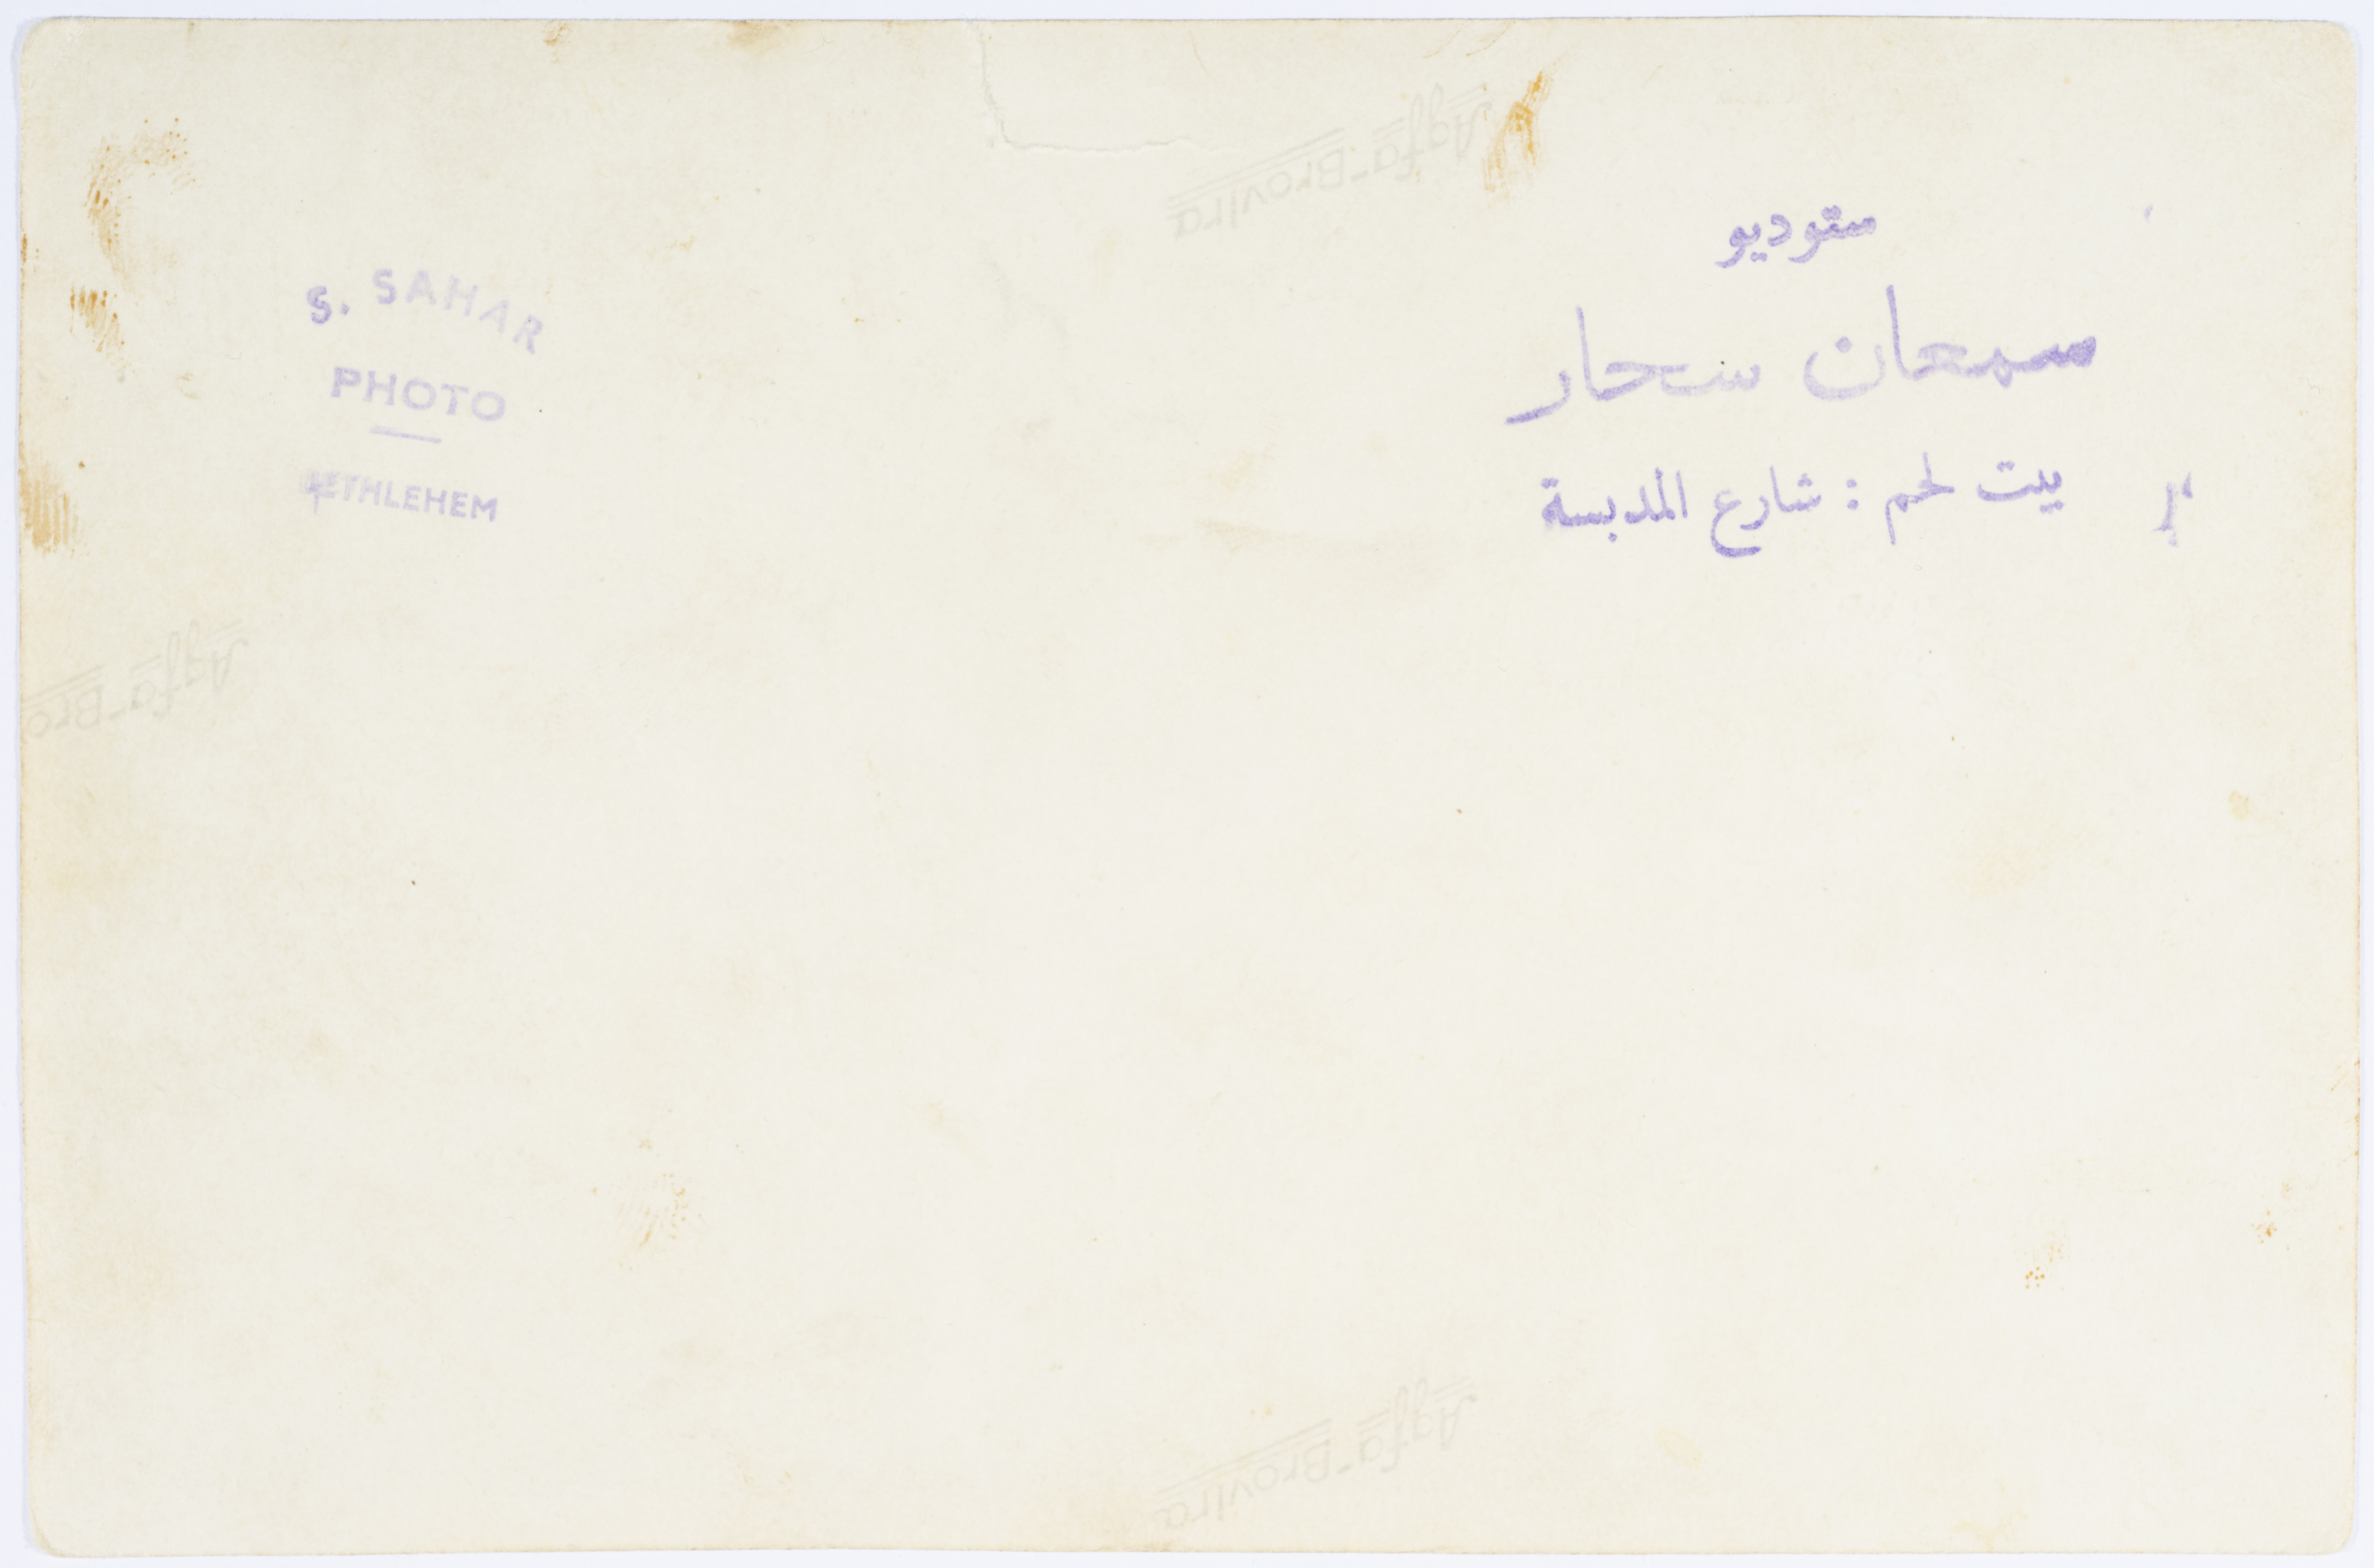 S. SAHAR
PHOTO
BETHLEHEM
ستوديو
سمعان سحار
بيت لحم : شارع المدبسة
Agfa-Brovira
Agfa-Bro
Agfa-Brovira